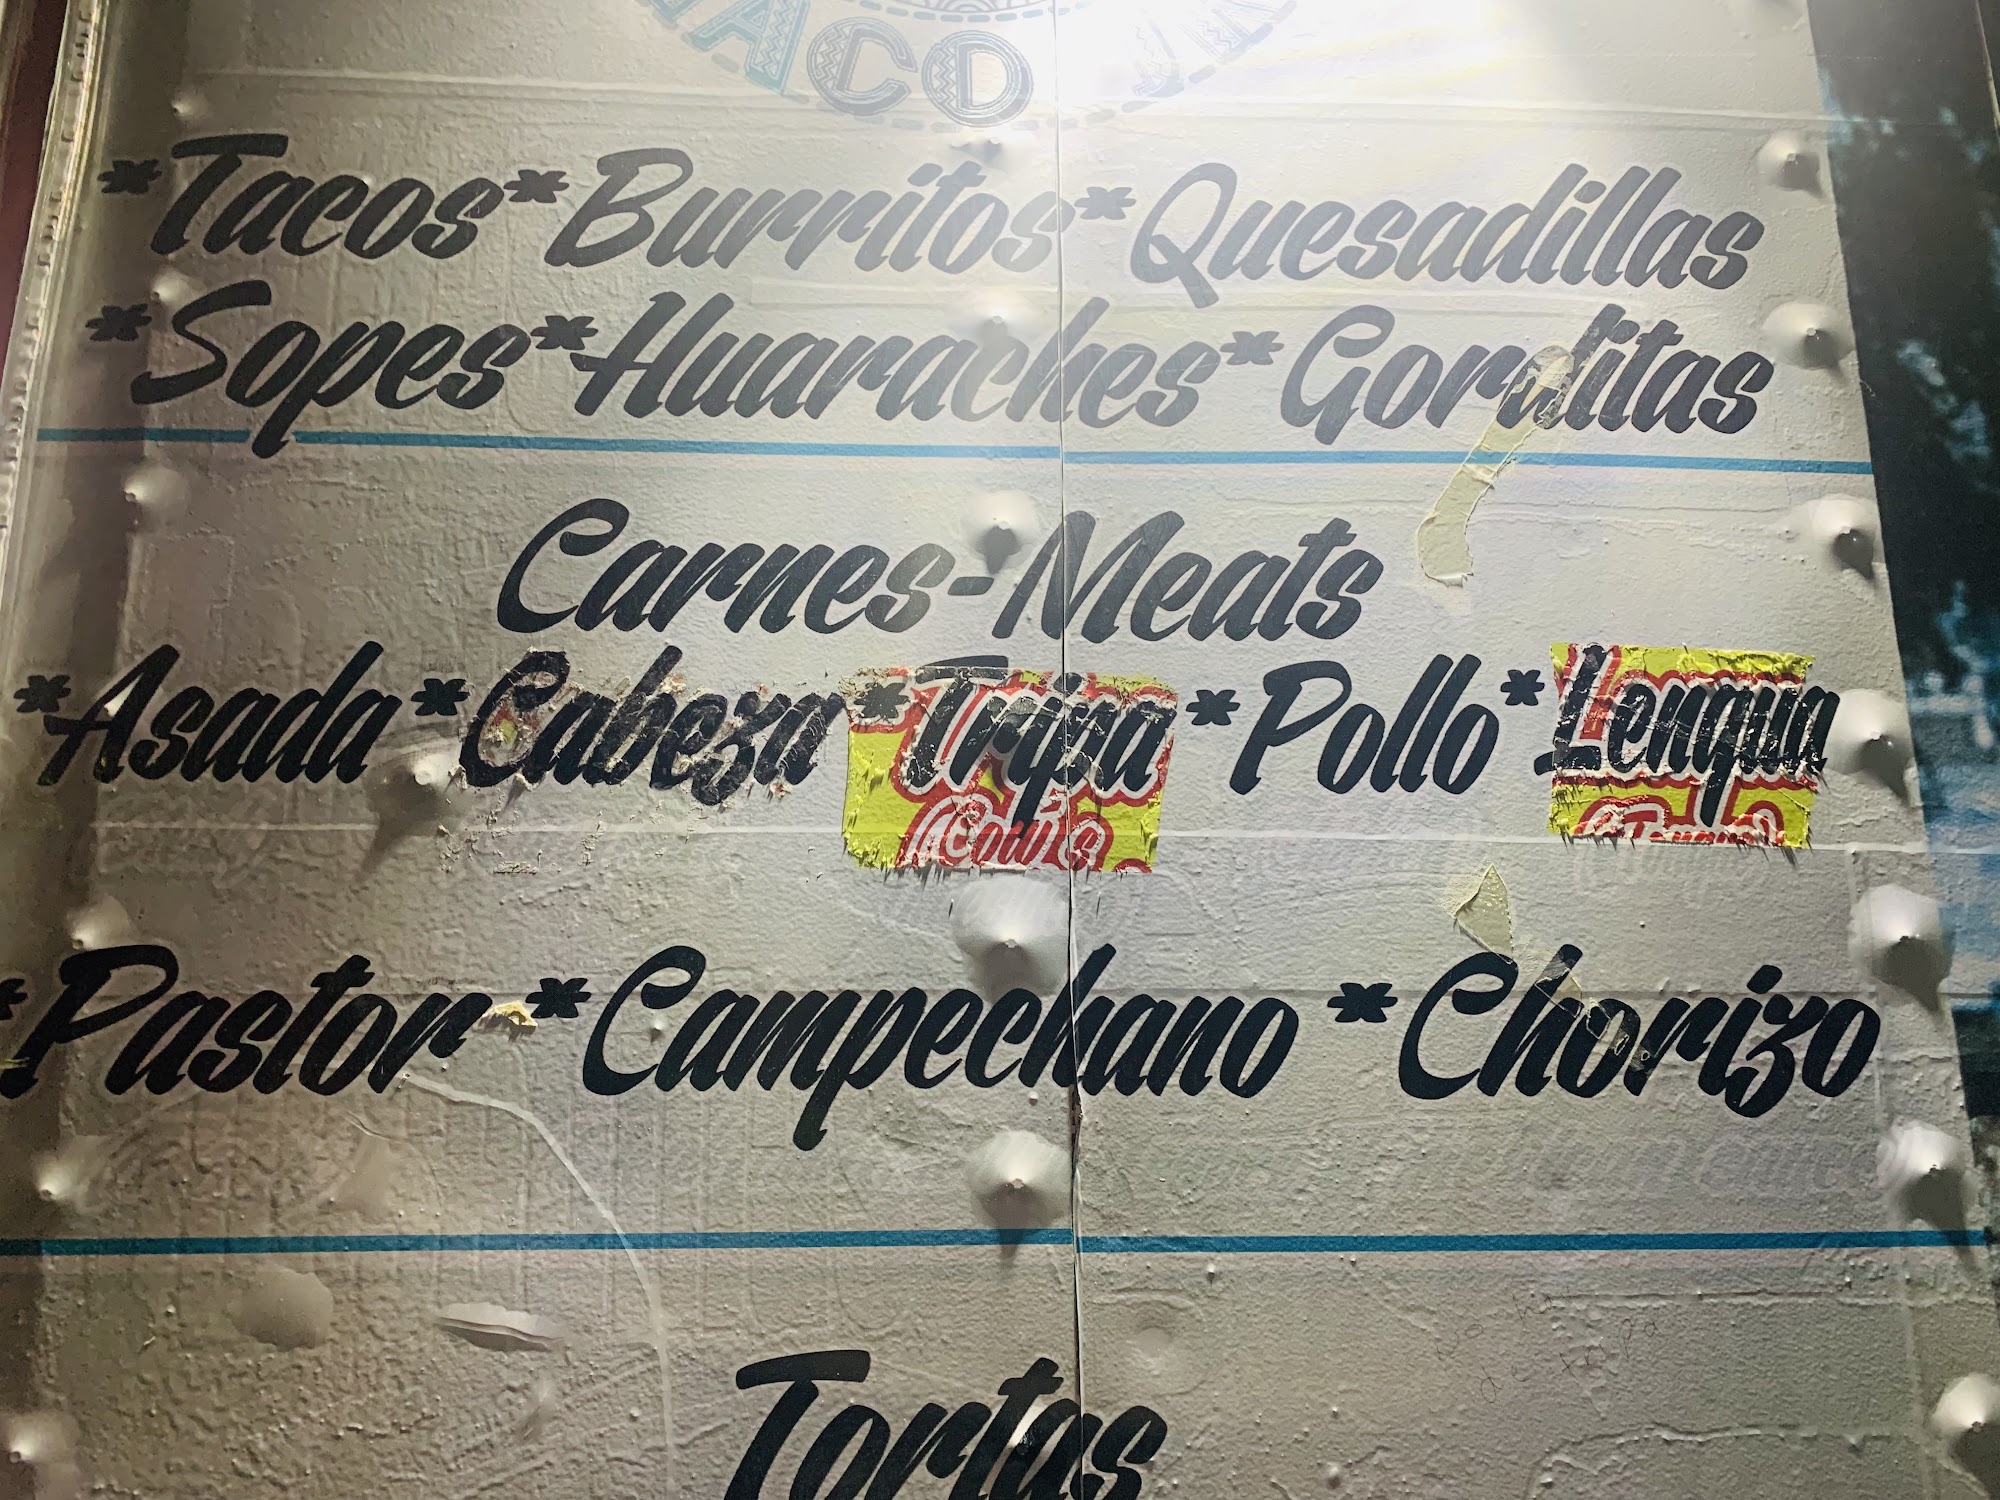 *Tacos*Burritos*Quesadillas
*Sopes*Huaraches*Gorditas
Carnes-Meats
*Asada*Cabeza*Tripa*Pollo*Lengua
(Cow's
(Tongue)
*Pastor*Campechano*Chorizo
No hay
de tripa
Tortas